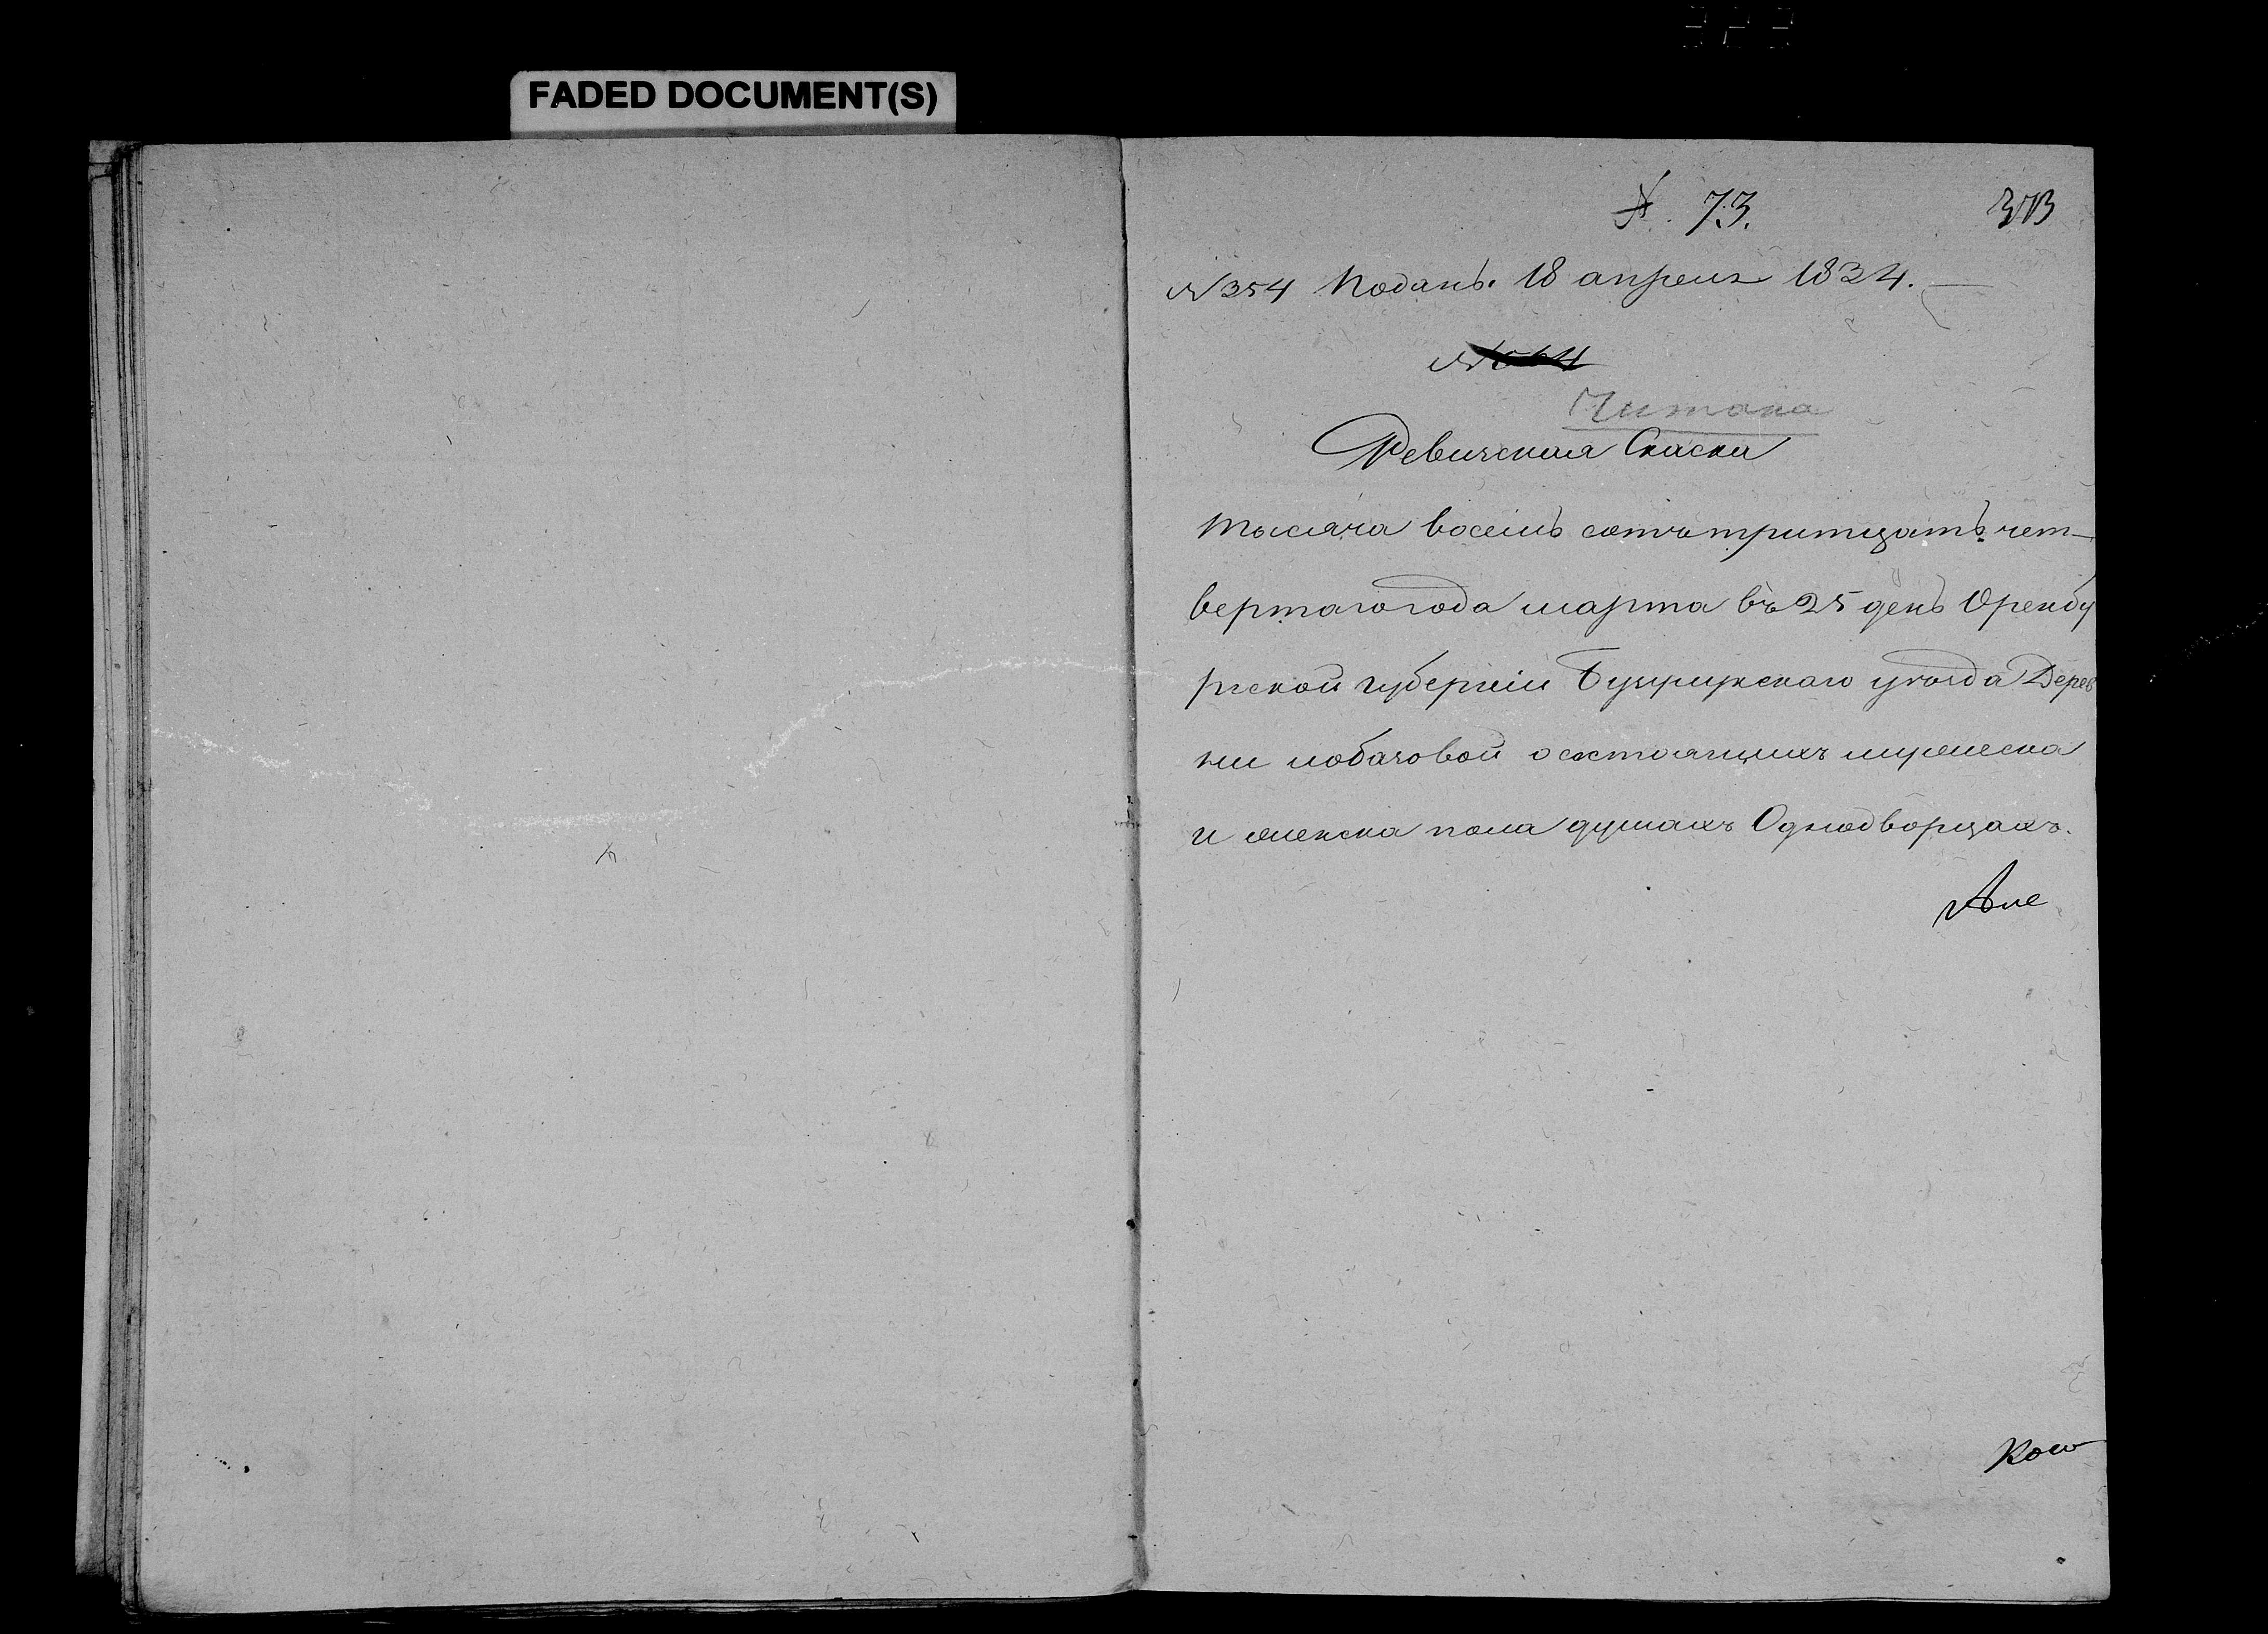 FADED DOCUMENT(S)
№. 73.
№354 Поданъ. 18 апреля 1834.
Читана
Ревизская Скаска
тысяча восемь сотъ тритцать чет-
вертаго года марта въ 25 день Оренбу
ргской губерніи Бузулукскаго уезда Дерев
ни Лобазовой о состоящихъ мужеска
и женска пола душахъ Однодворцахъ.